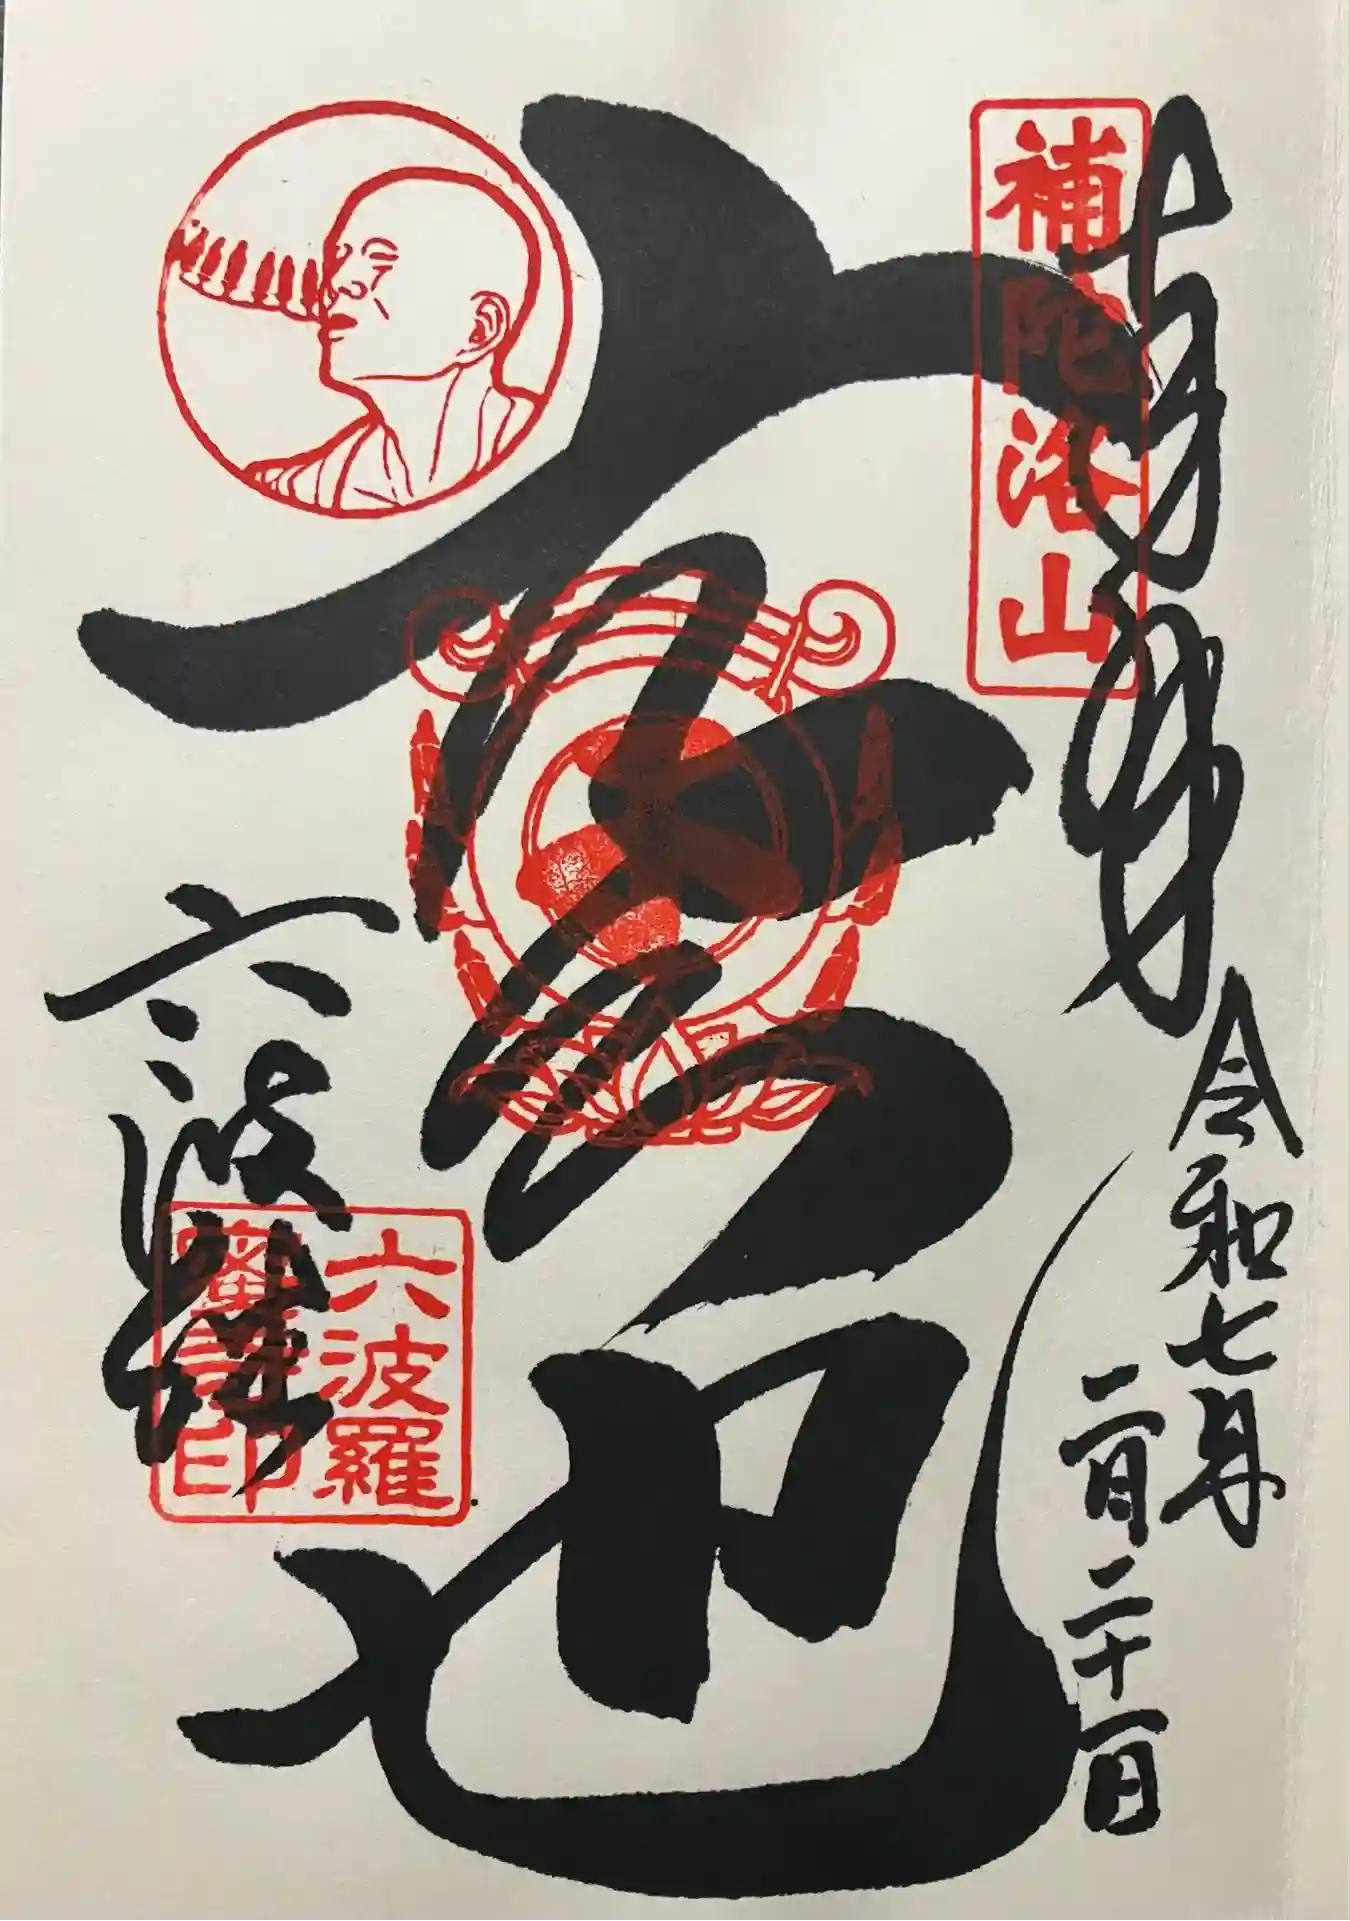 奉拝
補陀洛山
令和七年
二月二十一日
空也
六波羅蜜寺
六波羅
蜜寺印